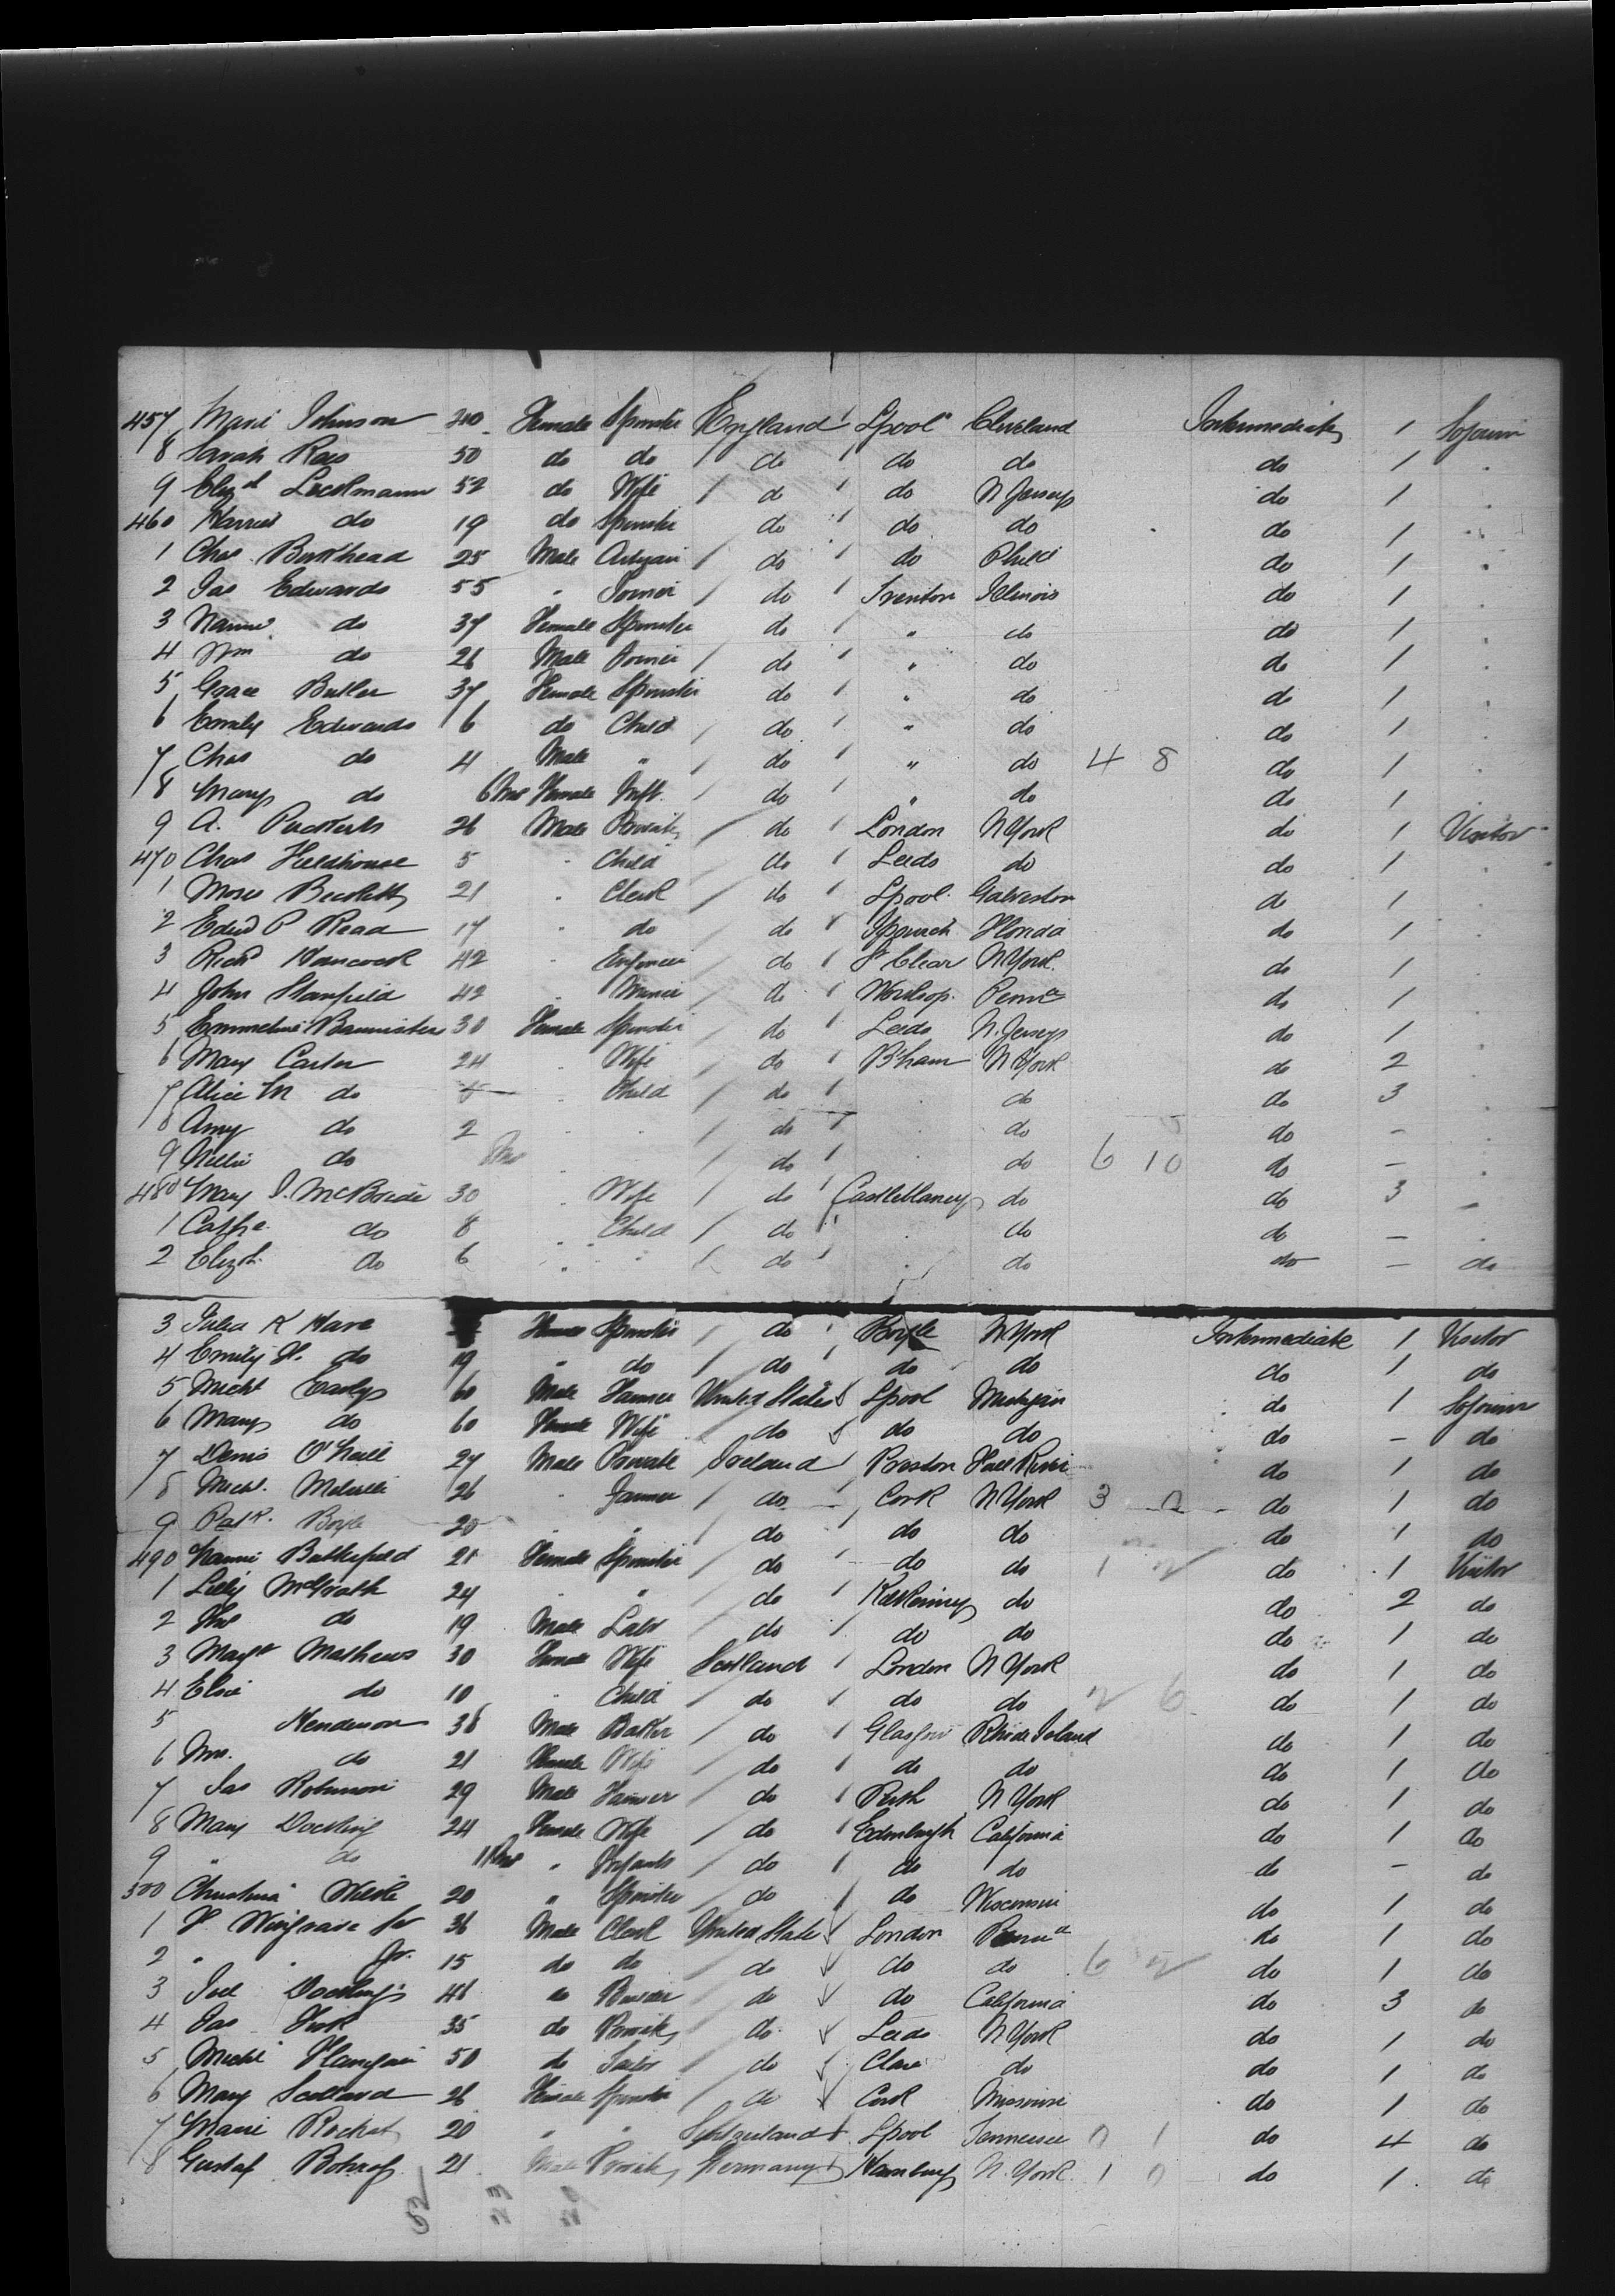 457 Marie Johnson 40 Female Spinster England Lpool Cleveland Intermediate 1 Sojourn
8 Sarah Rees 50 do do do do do do 1
9 Elizth Lockmann 52 do Wife do do N Jersey do 1
460 Harriet do 19 do Spinster do do do do 1
1 Chas Burkhead 25 Male Artizan do do Phila do 1
2 Jas Edwards 55 " Joiner do Trenton Illinois do 1
3 Nannie do 37 Female Spinster do " do do 1
4 Wm do 26 Male Joiner do " do do 1
5 Grace Butler 37 Female Spinster do " do do 1
6 Emily Edwards 6 do Child do " do do 1
7 Chas do 4 Male " do " do 4 8 do 1
8 Mary do 6 Mos Female Inft. do " do do 1
9 A. 26 Male Private do London N York do 1 Visitor
470 Chas Fieldhouse 5 " Child do Leeds do do 1
1 Moses Beckett 21 " Clerk do Lpool Galveston do 1
2 Edwd P Read 17 " do do Ipswich Florida do 1
3 Richd Hancock 42 " Engineer do St Clear N York do 1
4 John Stanfield 42 " Miner do Worksop Penna do 1
5 Emmeline Bannister 30 Female Spinster do Leeds N. Jersey do 1
6 Mary Carter 24 " Wife do B'ham N York do 2
7 Alice M do " Child do do do 3
8 Amy do 2 " " do do do -
9 Nellie do Mos " do do 6 10 do -
480 Mary J. McBride 30 " Wife do Castleblaney do do 3
1 Cathe do 8 " Child do do do -
2 Elizth do 6 " " do do do - do
3 Julia K Hare Female Spinster do Boyle N York Intermediate 1 Visitor
4 Emily H. do 19 " do do do do do 1 do
5 Michl Early 60 Male Farmer United States Lpool Michigan do 1 Sojourn
6 Mary do 60 Female Wife do do do do - do
7 Denis O'Neill 27 Male Private Ireland Preston Fall River do 1 do
8 Michl. 26 " Farmer do Cork N York 3 0 do 1 do
9 Patk. Boyle 20 " " do do do do 1 do
490 Nannie Butterfield 21 Female Spinster do do do 1 2 do 1 Visitor
1 Lilly McGrath 24 " " do Kilkenny do do 2 do
2 Jno do 19 Male Labr do do do do 1 do
3 Magt Mathews 30 Female Wife Scotland London N York do 1 do
4 Elsie do 10 " Child do do do 2 6 do 1 do
5 Henderson 36 Male Baker do Glasgow Rhode Island do 1 do
6 Mrs. do 21 Female Wife do do do do 1 do
7 Jas Robinson 29 Male Farmer do Perth N York do 1 do
8 Mary Docking 24 Female Wife do Edinburgh California do 1 do
9 " do 11 Mos " Infants do do do do - do
500 Christina 20 " Spinster do do Wisconsin do 1 do
1 H Wingrave Sr 36 Male Clerk United States London Penna do 1 do
2 " " Jr. 15 do do do do do 6 2 do 1 do
3 Joel Docking 46 do Builder do do California do 3 do
4 Jas Kirk 35 do Private do Leeds N York do 1 do
5 Michl Flanigan 50 do Tailor do Clare do do 1 do
6 Mary Scolland 26 Female Spinster do Cork Missouri do 1 do
7 Marie Rochat 20 " " Switzerland Lpool Tennessee 0 1 do 4 do
8 Gustaf 21 Male Private Germany Hamburg N. York 1 0 do 1 do